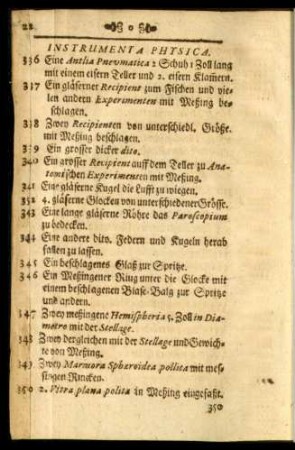 22
INSTRUMENTA PHYSICA.
336 Eine Antlia Pnevmatica 2 Schuh 1 Zoll lang
mit einem eisern Teller und 2. eisern Klam̃ern.
337 Ein gläserner Recipient zum Fischen und vie-
len andern Experimenten mit Meßing be-
schlagen.
338 Zwey Recipienten von unterschiedl. Größe.
mit Meßing beschlagen.
339 Ein grosser dicker dito.
340 Ein grosser Recipient auff dem Teller zu Ana-
tomischen Experimenten mit Meßing.
341 Eine gläserne Kugel die Lufft zu wiegen.
342 4. gläserne Glocken von unterschiedener Grösse.
343 Eine lange gläserne Röhre das Paroscopium
zu bedecken.
344 Eine andere dito. Federn und Kugeln herab
fallen zu lassen.
345 Ein beschlagenes Glaß zur Spritze.
346 Ein Meßingener Ring unter die Glocke mit
einem beschlagenen Blase-Balg zur Spritze
und andern.
347 Zwey meßingene Hemispheria 5. Zoll in Dia-
metro mit der Stellage.
348 Zwey dergleichen mit der Stellage und Gewich-
te von Meßing.
349 Zwey Marmora Spheroidea pollita mit mes-
singen Rincken.
350 2. Vitra plana polita in Meßing eingefaßt.
350